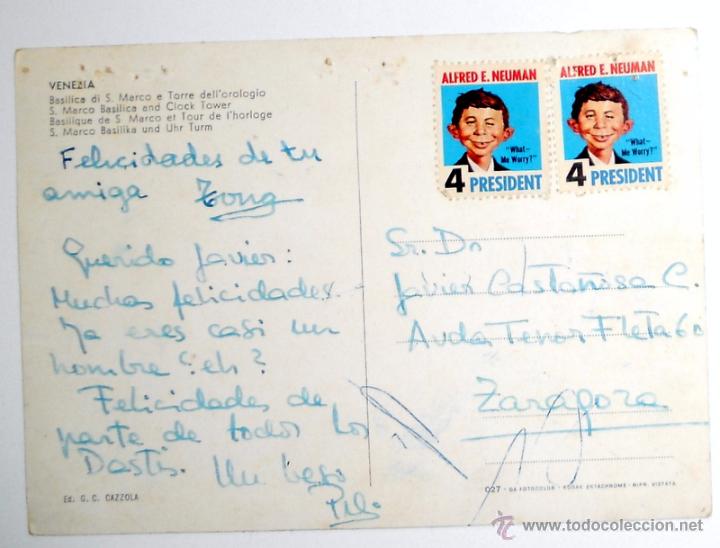 VENEZIA
Basilica di S. Marco e Torre dell'orologio
S. Marco Basilica and Clock Tower
Basilique de S. Marco et Tour de l'horloge
S. Marco Basilika und Uhr Turm
Felicidades de tu
amiga
Querido Javier:
Muchas felicidades.
Ya eres casi un
hombre ¿eh?
Felicidades de
parte de todos los
Dastis. Un beso
Pili
Ed. G. C. CAZZOLA
ALFRED E. NEUMAN
"What—
Me Worry?"
4 PRESIDENT
ALFRED E. NEUMAN
"What—
Me Worry?"
4 PRESIDENT
Sr. Dn
Javier Castañosa C.
Avda Tenor Fleta 60
Zaragoza
027 - GA FOTOCOLOR - KODAK EKTACHROME - RIPR. VIETATA
© todocoleccion.net
www.todocoleccion.net